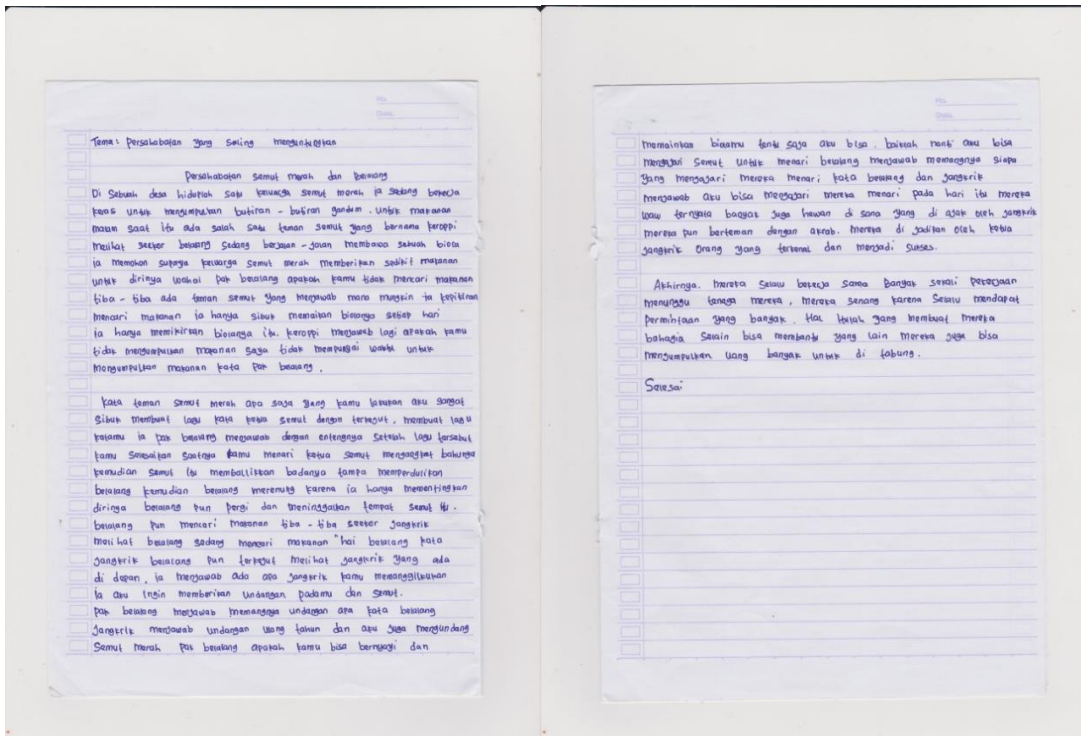 Tema : Persahabatan yang saling menguntungkan
Persahabatan semut merah dan Belalang
Di Sebuah desa hiduplah satu keluarga semut merah ia sedang bekerja
keras untuk mengumpulkan butiran - butiran gandum. untuk makanan
malam saat itu ada salah satu teman semut yang bernama keroppi
melihat seekor belalang sedang berjalan - jalan membawa sebuah biola
ia memohon supaya keluarga semut merah memberikan sedikit makanan
untuk dirinya wahai pak belalang apakah kamu tidak mencari makanan
tiba - tiba ada teman semut yang menjawab mana mungkin ia kepikiran
mencari makanan ia hanya sibuk memaikan biolanya setiap hari
ia hanya memikirkan biolanya itu. keroppi menjawab lagi apakah kamu
tidak mengumpulkan makanan saya tidak mempunyai waktu untuk
mengumpulkan makanan kata pak belalang.
kata teman semut merah apa saja yang kamu lakukan aku sangat
sibuk membuat lagu kata ketua semut dengan terkejut. membuat lagu
katamu ia pak belalang menjawab dengan entengnya setelah lagu tersebut
kamu selesaikan saatnya kamu menari ketua semut mengangkat bahunya
kemudian semut itu memballikkan badanya tampa memperdulikan
belalang kemudian belalang merenung karena ia hanya mementingkan
diringa belalang pun pergi dan meninggalkan tempat semut itu.
belalang pun mencari makanan tiba - tiba seekor jangkrik
melihat belalang sedang mencari makanan "hai belalang kata
jangkrik belalang pun terkejut melihat jangkrik yang ada
di depan. ia menjawab ada apa jangkrik kamu memanggilkukan
ia aku ingin memberikan undangan padamu dan semut.
pak belalang menjawab memangnya undangan apa kata belalang
jangkrik menjawab undangan ulang tahun dan aku juga mengundang
semut merah pak belalang apakah kamu bisa bernyayi dan
memainkan biolamu tentu saja aku bisa. baiklah nanti aku bisa
mengajari semut untuk menari belalang menjawab memangnya siapa
yang mengajari mereka menari kata belalang dan jangkrik
menjawab aku bisa mengajari mereka menari pada hari itu mereka
waw ternyata banyak juga hewan di sana yang di ajak oleh jangkrik
mereka pun berteman dengan akrab. mereka di jadikan oleh ketua
jangkrik orang yang terkenal dan menjadi sukses.
Akhirnya. mereka selalu bekerja sama Banyak sekali pekerjaan
menunggu tenaga mereka, mereka senang karena selalu mendapat
permintaan yang banyak. Hal itulah yang membuat mereka
bahagia selain bisa membantu yang lain mereka juga bisa
mengumpulkan uang banyak untuk di tabung.
Selesai